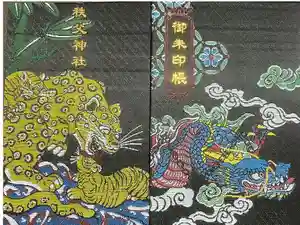 秩父神社
御朱印帳